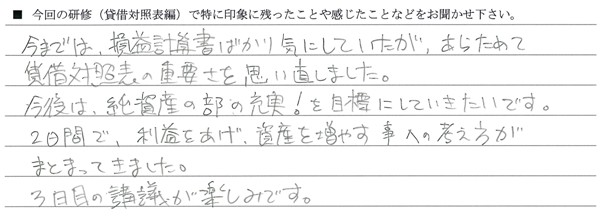 ■ 今回の研修（貸借対照表編）で特に印象に残ったことや感じたことなどをお聞かせ下さい。
今までは、損益計算書ばかり気にしていたが、あらためて
貸借対照表の重要さを思い直しました。
今後は、純資産の部の充実！を目標にしていきたいです。
2日間で、利益をあげ、資産を増やす事への考え方が
まとまってきました。
3日目の講議が楽しみです。